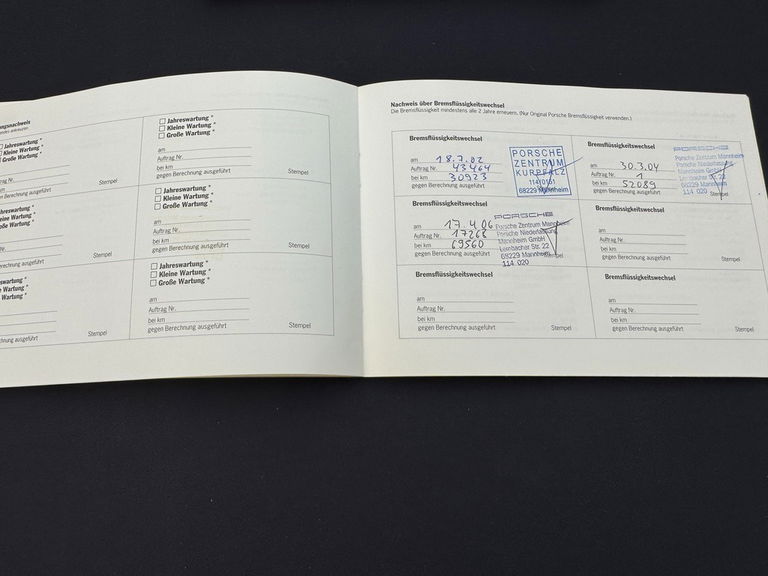 ungsnachweis
Jahreswartung *
Kleine Wartung *
Große Wartung *
gegen Berechnung ausgeführt
Stempel
Jahreswartung *
Kleine Wartung *
Große Wartung *
am
Auftrag Nr.
bei km
gegen Berechnung ausgeführt
Stempel
Jahreswartung *
Kleine Wartung *
Große Wartung *
am
Auftrag Nr.
bei km
gegen Berechnung ausgeführt
Stempel
Jahreswartung *
Kleine Wartung *
Große Wartung *
am
Auftrag Nr.
bei km
gegen Berechnung ausgeführt
Stempel
Nachweis über Bremsflüssigkeitswechsel
Die Bremsflüssigkeit mindestens alle 2 Jahre erneuern. (Nur Original Porsche Bremsflüssigkeit verwenden.)
Bremsflüssigkeitswechsel
am 18.7.02
Auftrag Nr. 43464
bei km 30923
gegen Berechnung ausgeführt
PORSCHE
ZENTRUM
KURPFALZ
68229 Mannheim
Bremsflüssigkeitswechsel
am 30.3.04
Auftrag Nr. 1
bei km 52089
gegen Berechnung ausgeführt
PORSCHE
Porsche Zentrum Mannheim
Porsche Niederlassung
Mannheim GmbH
68229 Mannheim
114 020
Stempel
Bremsflüssigkeitswechsel
am 17.4.06
Auftrag Nr. 17268
bei km 69560
gegen Berechnung ausgeführt
PORSCHE
Porsche Zentrum Mannheim
Porsche Niederlassung
Mannheim GmbH
68229 Mannheim
114 020
Bremsflüssigkeitswechsel
am
Auftrag Nr.
bei km
gegen Berechnung ausgeführt
Stempel
Bremsflüssigkeitswechsel
am
Auftrag Nr.
bei km
gegen Berechnung ausgeführt
Stempel
Bremsflüssigkeitswechsel
am
Auftrag Nr.
bei km
gegen Berechnung ausgeführt
Stempel